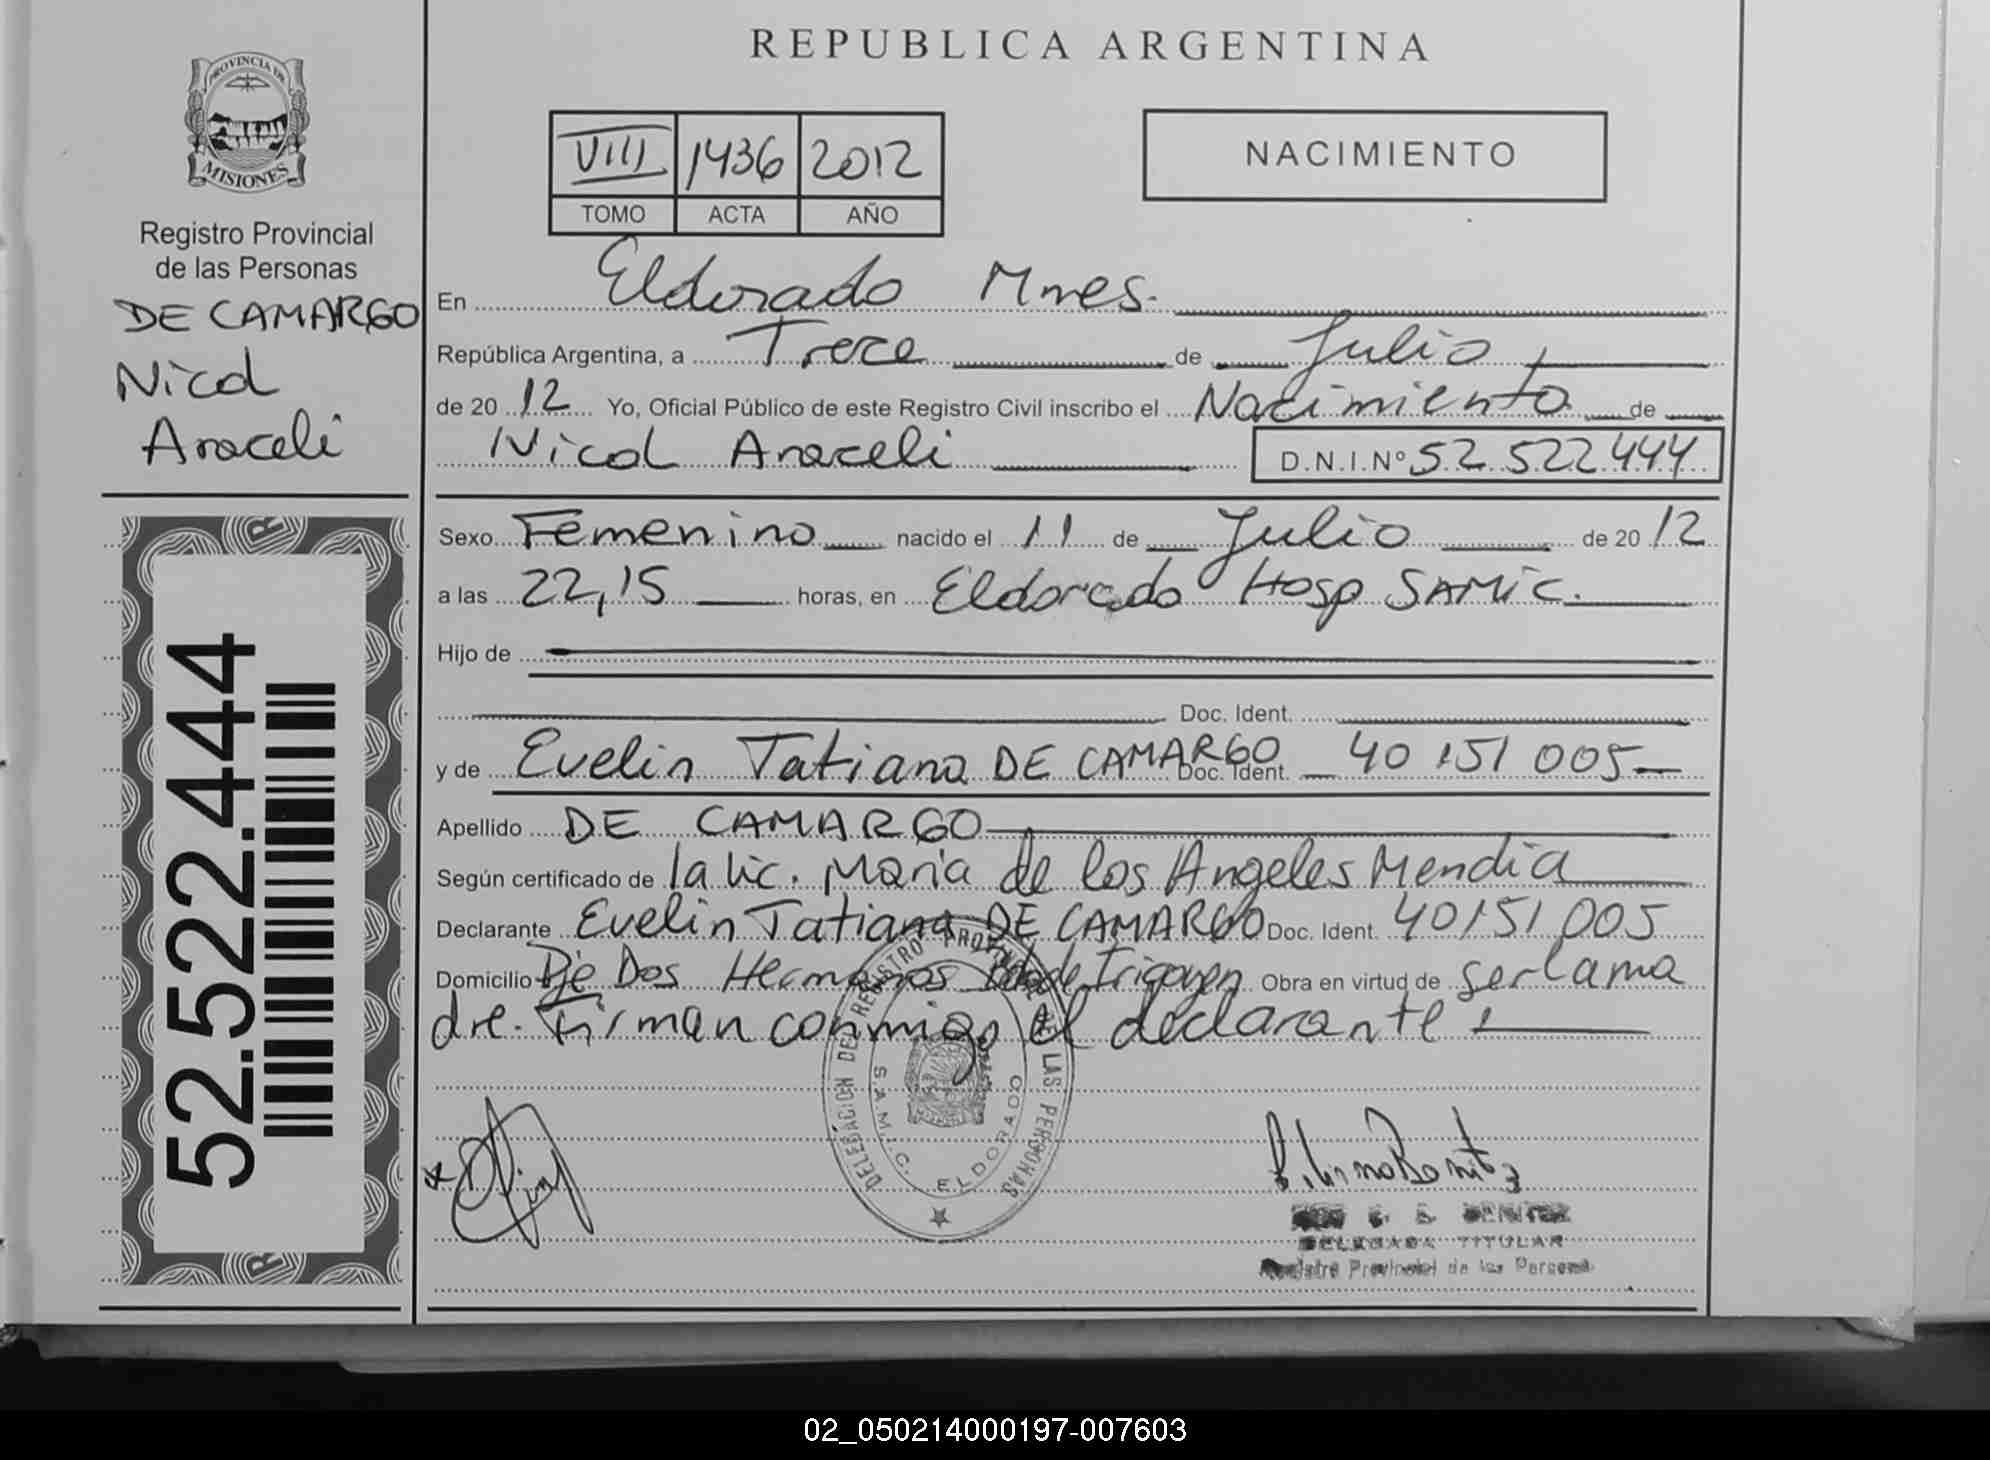 REPUBLICA ARGENTINA
PROVINCIA DE
MISIONES
Registro Provincial
de las Personas
DE CAMARGO
Nicol
Araceli
52.522.444
VIII 1436 2012
TOMO ACTA AÑO
NACIMIENTO
En Eldorado Mnes.
República Argentina, a Trece de Julio
de 20 12 Yo, Oficial Público de este Registro Civil inscribo el Nacimiento de
Nicol Araceli D.N.I.Nº 52 522 444
Sexo Femenino nacido el 11 de Julio de 20 12
a las 22,15 horas, en Eldorado Hosp SAMIC.
Hijo de
Doc. Ident.
y de Evelin Tatiana DE CAMARGO Doc. Ident. 40 151 005
Apellido DE CAMARGO
Según certificado de la lic. Maria de los Angeles Mendia
Declarante Evelin Tatiana DE CAMARGO Doc. Ident. 40151 005
Domicilio Pje Dos Hermanos Irigoyen Obra en virtud de ser la ma
dre. Firman conmigo el declarante
DELEGACION DEL REGISTRO PROVINCIAL DE LAS PERSONAS
S.A.M.I.C. ELDORADO
BENITEZ
DELEGADA TITULAR
Registro Provincial de las Personas
02_050214000197-007603